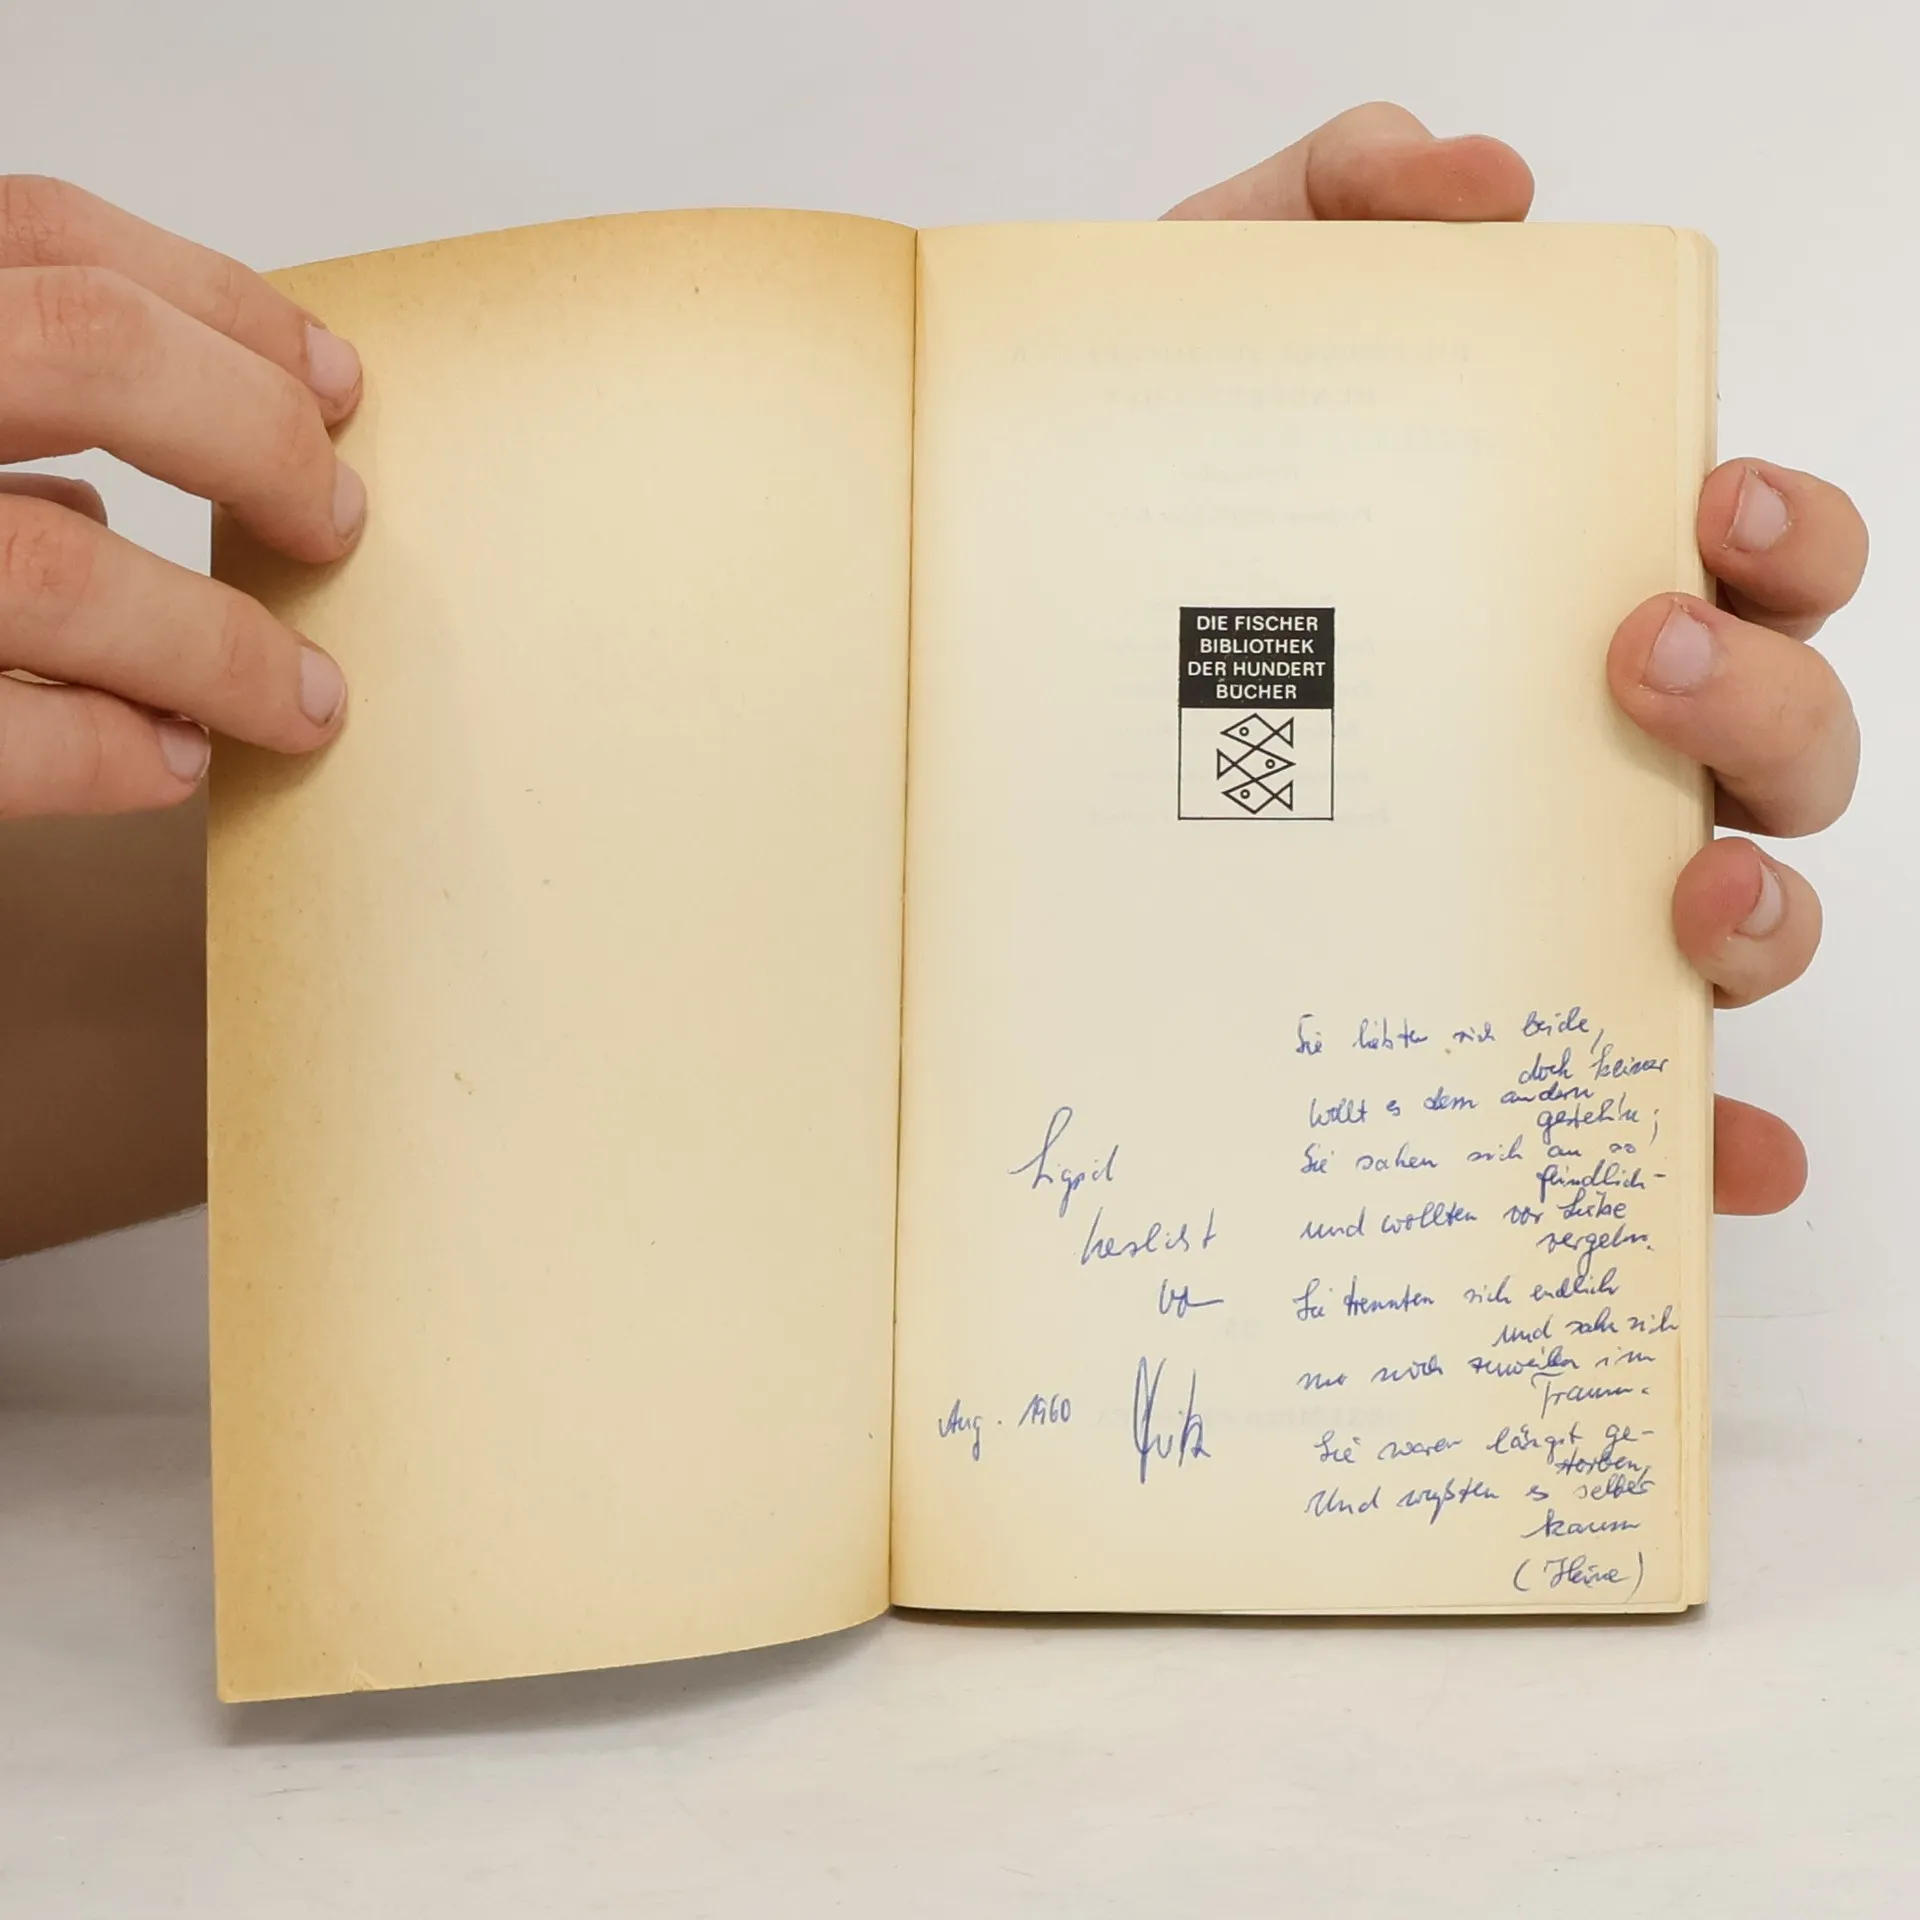 DIE FISCHER
BIBLIOTHEK
DER HUNDERT
BÜCHER
Sigrid
herzlichst
von
Aug. 1960
Sie liebten sich beide,
doch keiner
Wollt es dem andern
gesteh'n;
Sie sahen sich an so
feindlich -
und wollten vor Liebe
vergehn.
Sie trennten sich endlich
und sahn sich
nur noch zuweilen im
Traum.
Sie waren längst ge-
storben,
Und wußten es selber
kaum
(Heine)